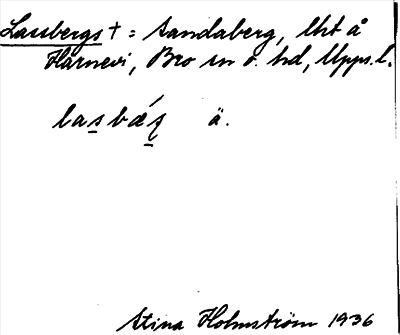 Lassbergs † = Sandaberg, lht å
Härnevi, Bro sn o. hd, Upps. l.
lasbæʂ ä.
Stina Holmström 1936